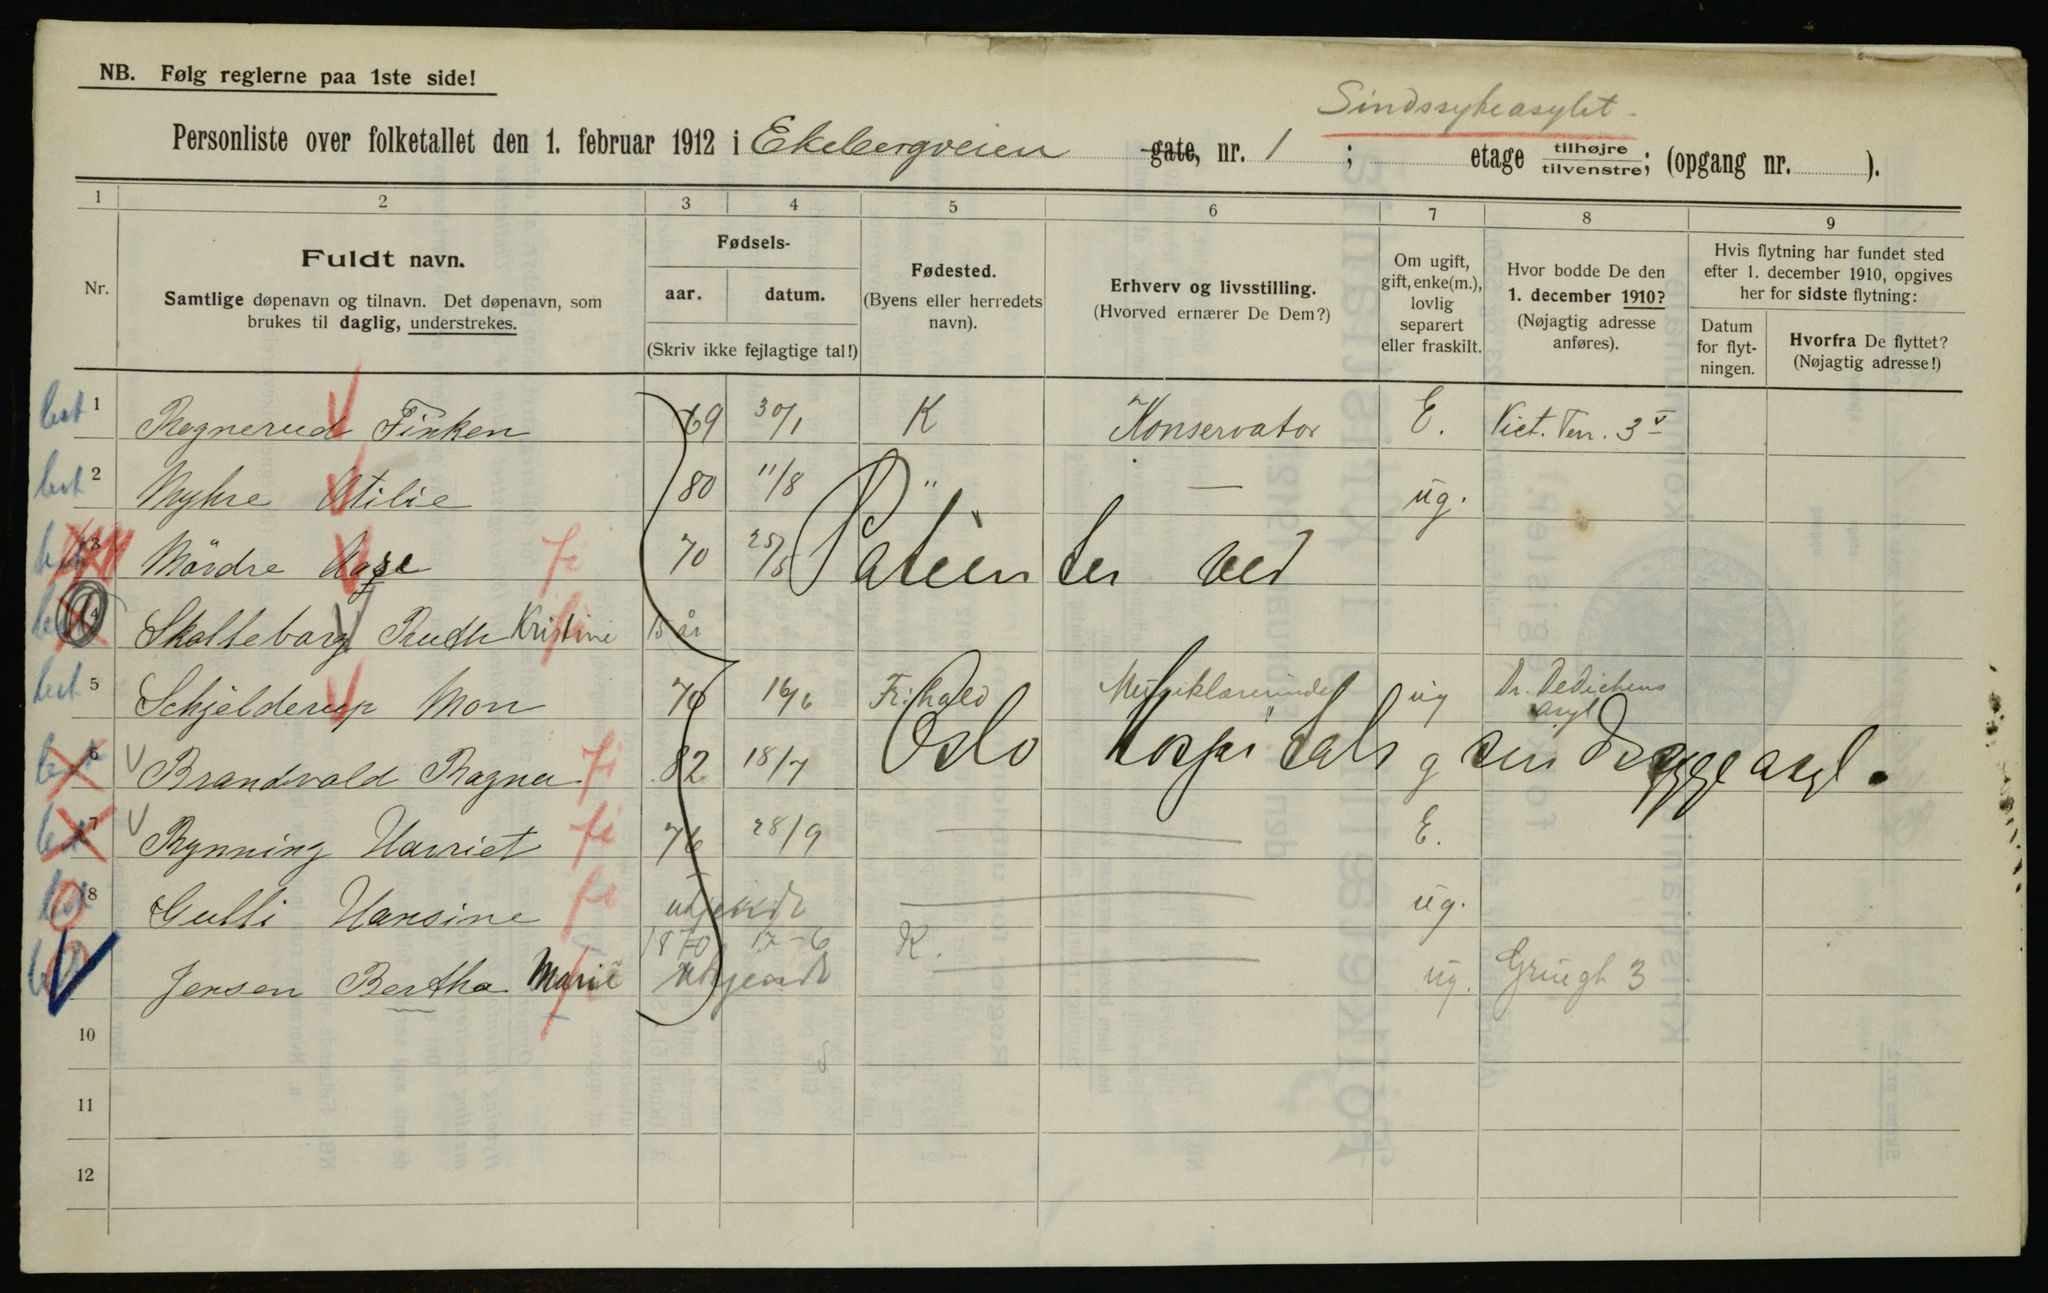 NB. Følg reglerne paa 1ste side!
Sindssykeasylet.
Personliste over folketallet den 1. februar 1912 i Ekebergveien gate, nr. 1 ; etage tilhøjre/tilvenstre; (opgang nr. ).
1 2 3 4 5 6 7 8 9
Nr.
Fuldt navn.
Samtlige døpenavn og tilnavn. Det døpenavn, som
brukes til daglig, understrekes.
Fødsels-
aar. datum.
(Skriv ikke fejlagtige tal!)
Fødested.
(Byens eller herredets
navn).
Erhverv og livsstilling.
(Hvorved ernærer De Dem?)
Om ugift,
gift, enke(m.),
lovlig
separert
eller fraskilt.
Hvor bodde De den
1. december 1910?
(Nøjagtig adresse
anføres).
Hvis flytning har fundet sted
efter 1. december 1910, opgives
her for sidste flytning:
Datum
for flyt-
ningen.
Hvorfra De flyttet?
(Nøjagtig adresse!)
1 Ragnerud Finken 69 30/1 K Konservator E. Vict. Terr. 3 v
2 Myhre Otilie 80 11/8 " — ug.
3 Mördre Aase fi 70 25/5
Patienter ved
4 Skolleborg Ruth Kristine fi 15 år
5 Schjelderup Mon 70 16/6 Fr:hald Musiklærerinde ug Dr. Dedichens
asyl
Oslo Hospitals sindssygeasyl.
6 Brandvold Ragna fi 82 18/7 g
7 Rynning Harriet fi 76 28/9 — E.
8 Gulli Hansine fi ukjendt — ug.
1870 17-6 K.
Jensen Bertha Marie ukjendt — ug. Grüngt 3
10
11
12